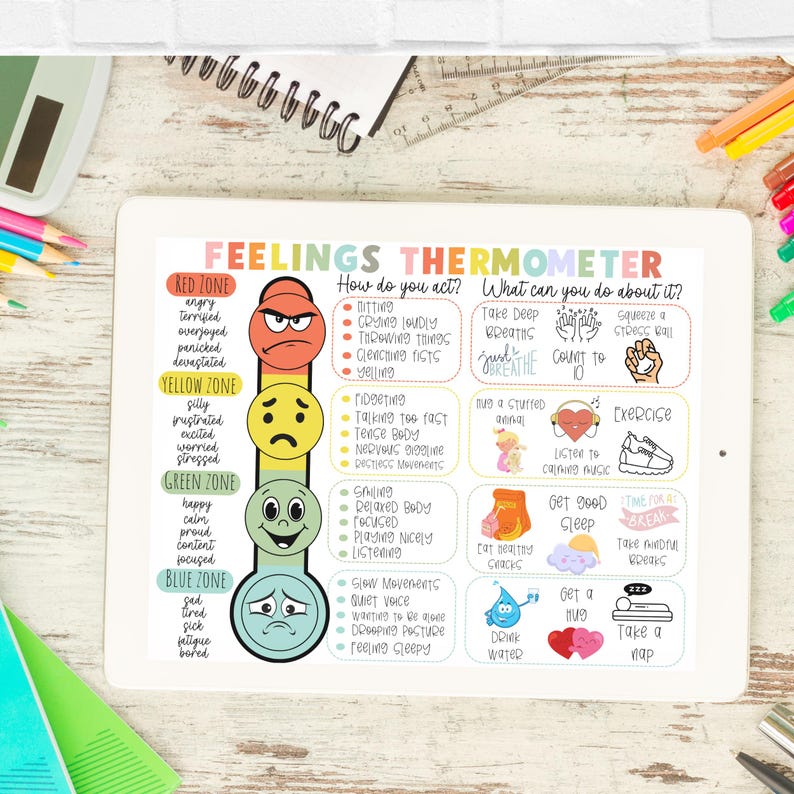 FEELINGS THERMOMETER
How do you act?
What can you do about it?
RED ZONE
angry
terrified
overjoyed
panicked
devastated
HITTING
CRYING LOUDLY
THROWING THINGS
CLENCHING FISTS
YELLING
TAKE DEEP
BREATHS
just
BREATHE
1 2 3 4 5 6 7 8 9 10
COUNT TO
10
SQUEEZE A
STRESS BALL
YELLOW ZONE
silly
frustrated
excited
worried
stressed
FIDGETING
TALKING TOO FAST
TENSE BODY
NERVOUS GIGGLING
RESTLESS MOVEMENTS
HUG A STUFFED
ANIMAL
LISTEN TO
CALMING MUSIC
EXERCISE
GREEN ZONE
happy
calm
proud
content
focused
SMILING
RELAXED BODY
FOCUSED
PLAYING NICELY
LISTENING
EAT HEALTHY
SNACKS
GET GOOD
SLEEP
TIME FOR A
BREAK
TAKE MINDFUL
BREAKS
BLUE ZONE
sad
tired
sick
fatigue
bored
SLOW MOVEMENTS
QUIET VOICE
WANTING TO BE ALONE
DROOPING POSTURE
FEELING SLEEPY
DRINK
WATER
GET A
HUG
ZZZ
TAKE A
NAP